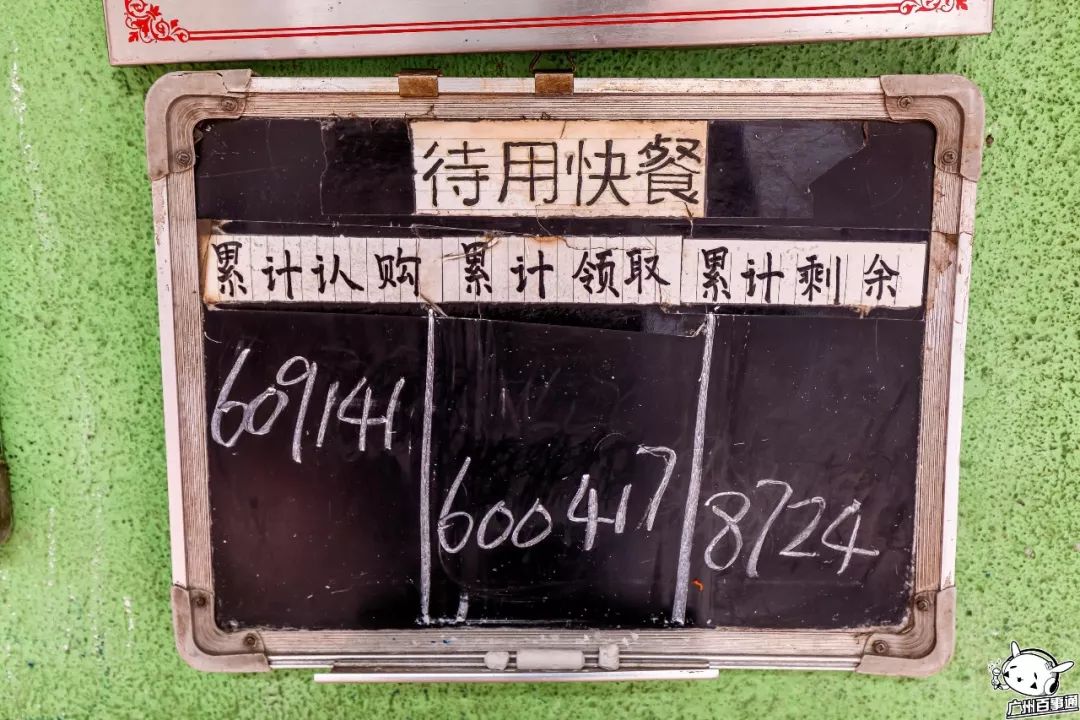 待用快餐
累计认购 累计领取 累计剩余
609141
600417
8724
广州百事通